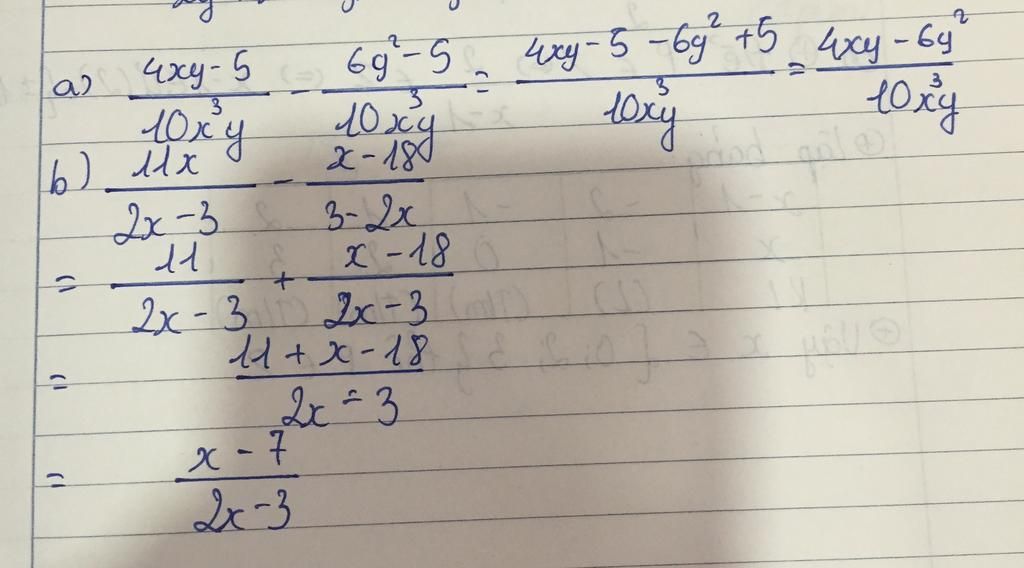 a) (4xy - 5)/(10x³y) - (6y² - 5)/(10x³y) = (4xy - 5 - 6y² + 5)/(10x³y) = (4xy - 6y²)/(10x³y)
b) (11x)/(2x - 3) - (x - 18)/(3 - 2x)
= (11)/(2x - 3) + (x - 18)/(2x - 3)
= (11 + x - 18)/(2x - 3)
= (x - 7)/(2x - 3)